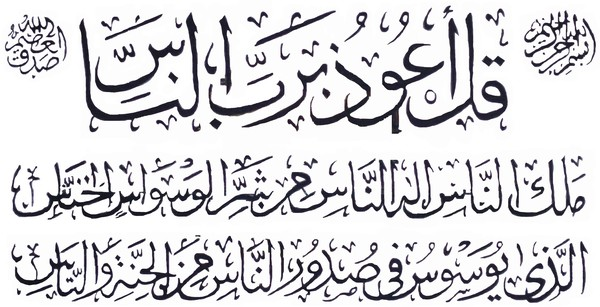 بسم الله الرحمن الرحيم
قل أعوذ برب الناس
ملك الناس إله الناس من شر الوسواس الخناس
الذي يوسوس في صدور الناس من الجنة والناس
صدق الله العظيم